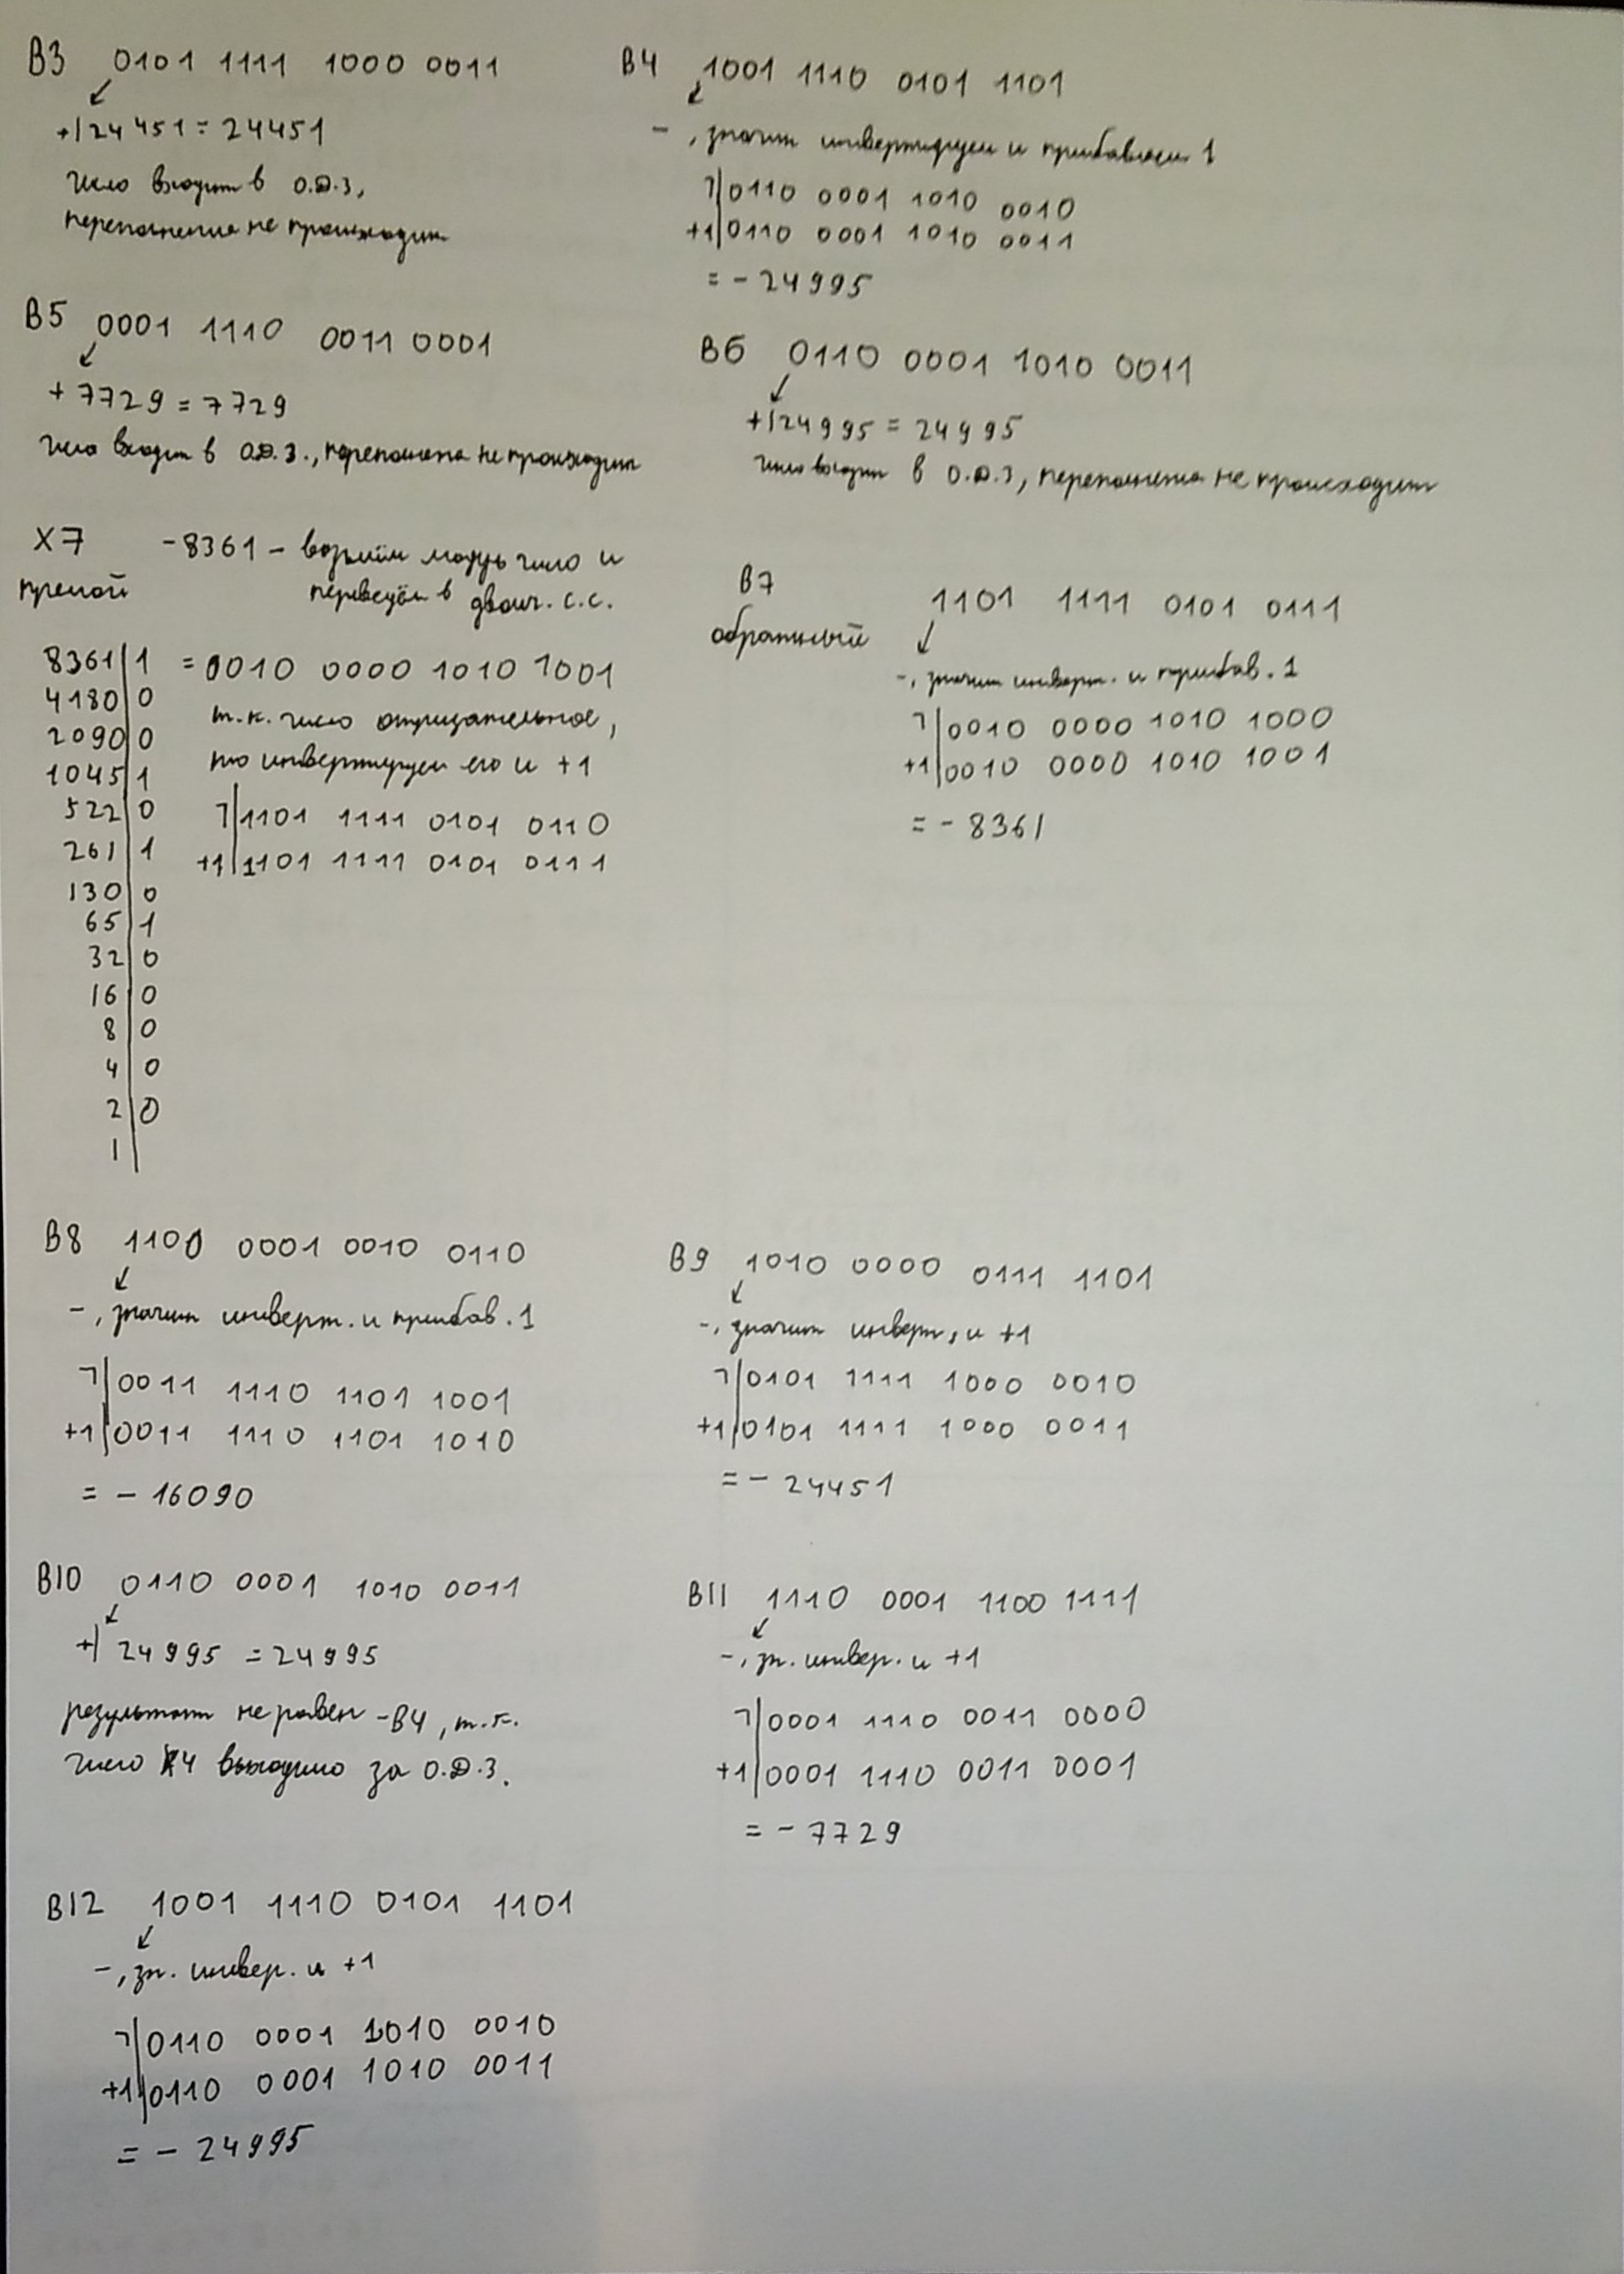 В3 0101 1111 1000 0011
+|24451 = 24451
число входит в О.Д.З,
переполнение не происходит
В4 1001 1110 0101 1101
-, значит инвертируем и прибавляем 1
7|0110 0001 1010 0010
+1|0110 0001 1010 0011
= - 24995
В5 0001 1110 0011 0001
+ 7729 = 7729
число входит в О.Д.З., переполнение не происходит
В6 0110 0001 1010 0011
+|24995 = 24995
число входит в О.Д.З, переполнение не происходит
Х7 -8361 - возьмём модуль число и
прямой переведём в двоич. с.с.
8361|1 = 0010 0000 1010 1001
4180|0 т.к. число отрицательное,
2090|0 то инвертируем его и +1
1045|1
522|0 7|1101 1111 0101 0110
261|1 +1|1101 1111 0101 0111
130|0
65|1
32|0
16|0
8|0
4|0
2|0
1|
В7 1101 1111 0101 0111
обратный
-, значит инверт. и прибав. 1
7|0010 0000 1010 1000
+1|0010 0000 1010 1001
= - 8361
В8 1100 0001 0010 0110
-, значит инверт. и прибав. 1
7|0011 1110 1101 1001
+1|0011 1110 1101 1010
= - 16090
В9 1010 0000 0111 1101
-, значит инверт, и +1
7|0101 1111 1000 0010
+1|0101 1111 1000 0011
= - 24451
В10 0110 0001 1010 0011
+| 24995 = 24995
результат не равен -В4, т.к.
число Х4 выходило за О.Д.З.
В11 1110 0001 1100 1111
-, зн. инвер. и +1
7|0001 1110 0011 0000
+1|0001 1110 0011 0001
= - 7729
В12 1001 1110 0101 1101
-, зн. инвер. и +1
7|0110 0001 1010 0010
+1|0110 0001 1010 0011
= - 24995